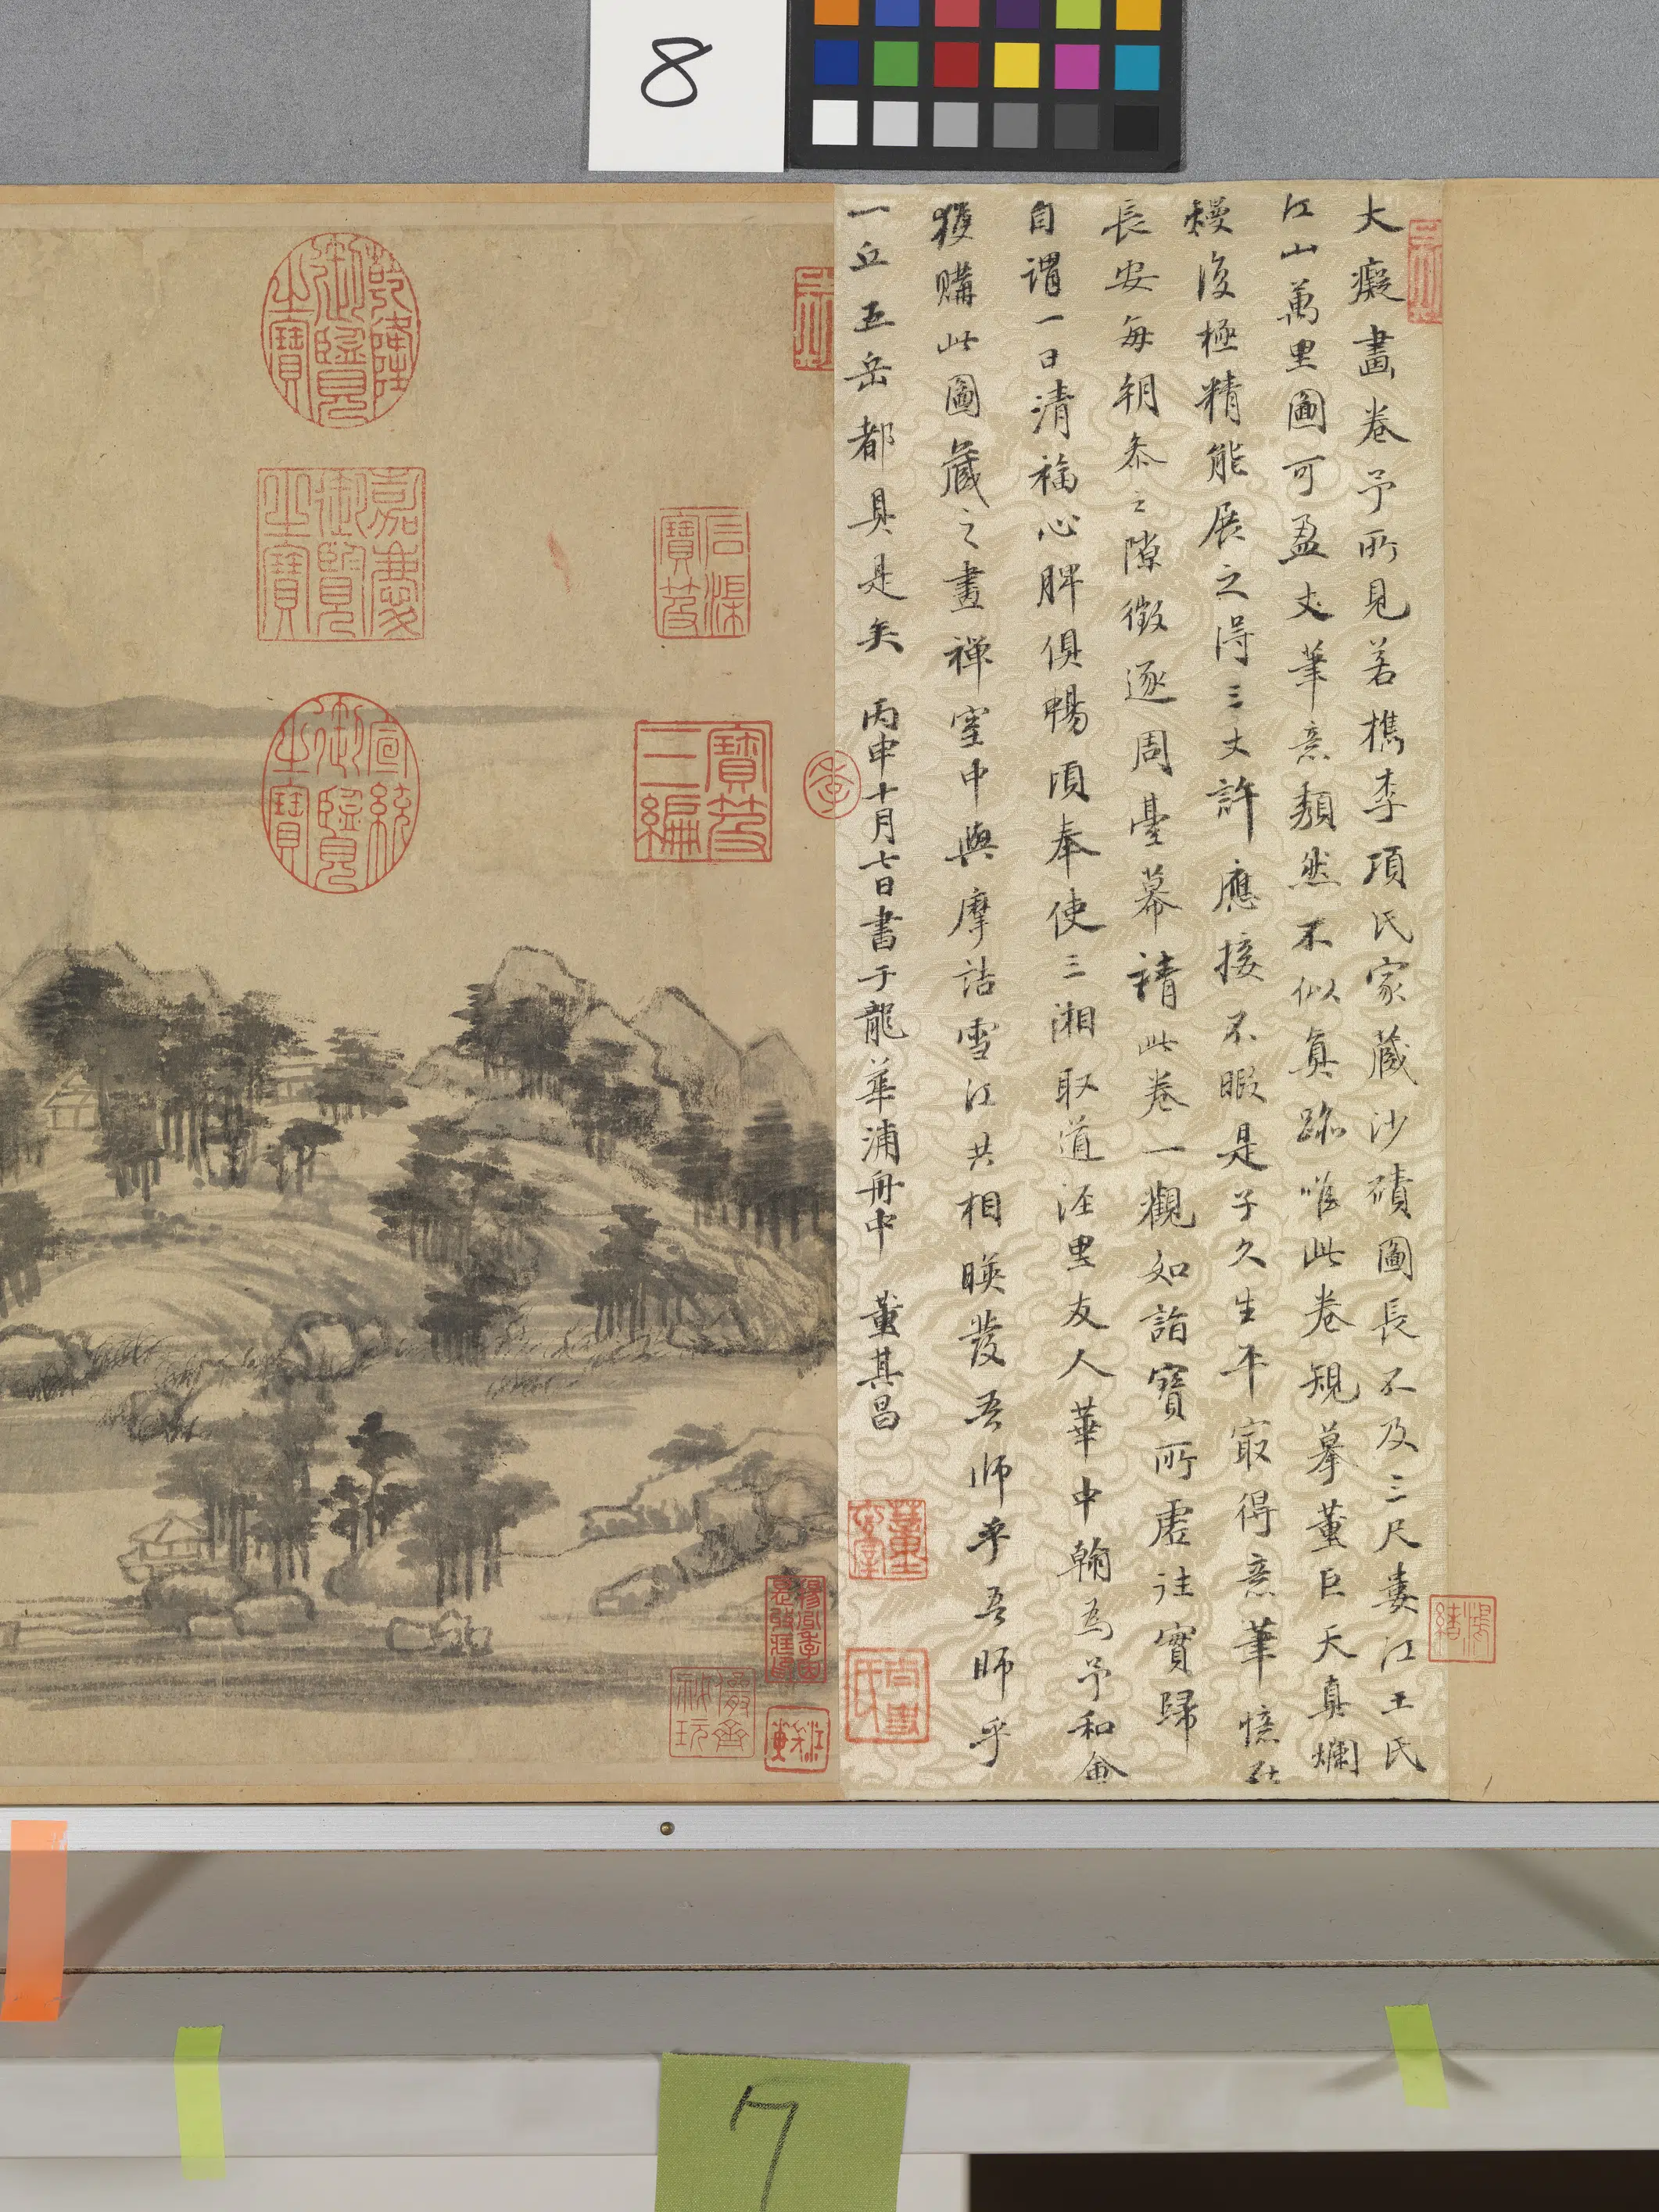 8
大癡畫卷予所見若檇李項氏家藏沙磧圖長不及三尺婁江王氏
江山萬里圖可盈丈筆意頹然不似真跡唯此卷規摹董巨天真爛
熳復極精能展之得三丈許應接不暇是子久生平㝡得意筆憶在
長安每朝參之隙徵逐周臺幕請此卷一觀如詣寶所虛往實歸
自謂一日清福心脾俱暢頃奉使三湘取道涇里友人華中翰為予和會
獲購此圖藏之畫禪室中與摩詰雪江共相暎發吾師乎吾師乎
一丘五岳都具是矣 丙申十月七日書于龍華浦舟中 董其昌
乾隆御覽之寶
嘉慶御覽之寶
宣統御覽之寶
石渠寶笈
寶笈三編
7